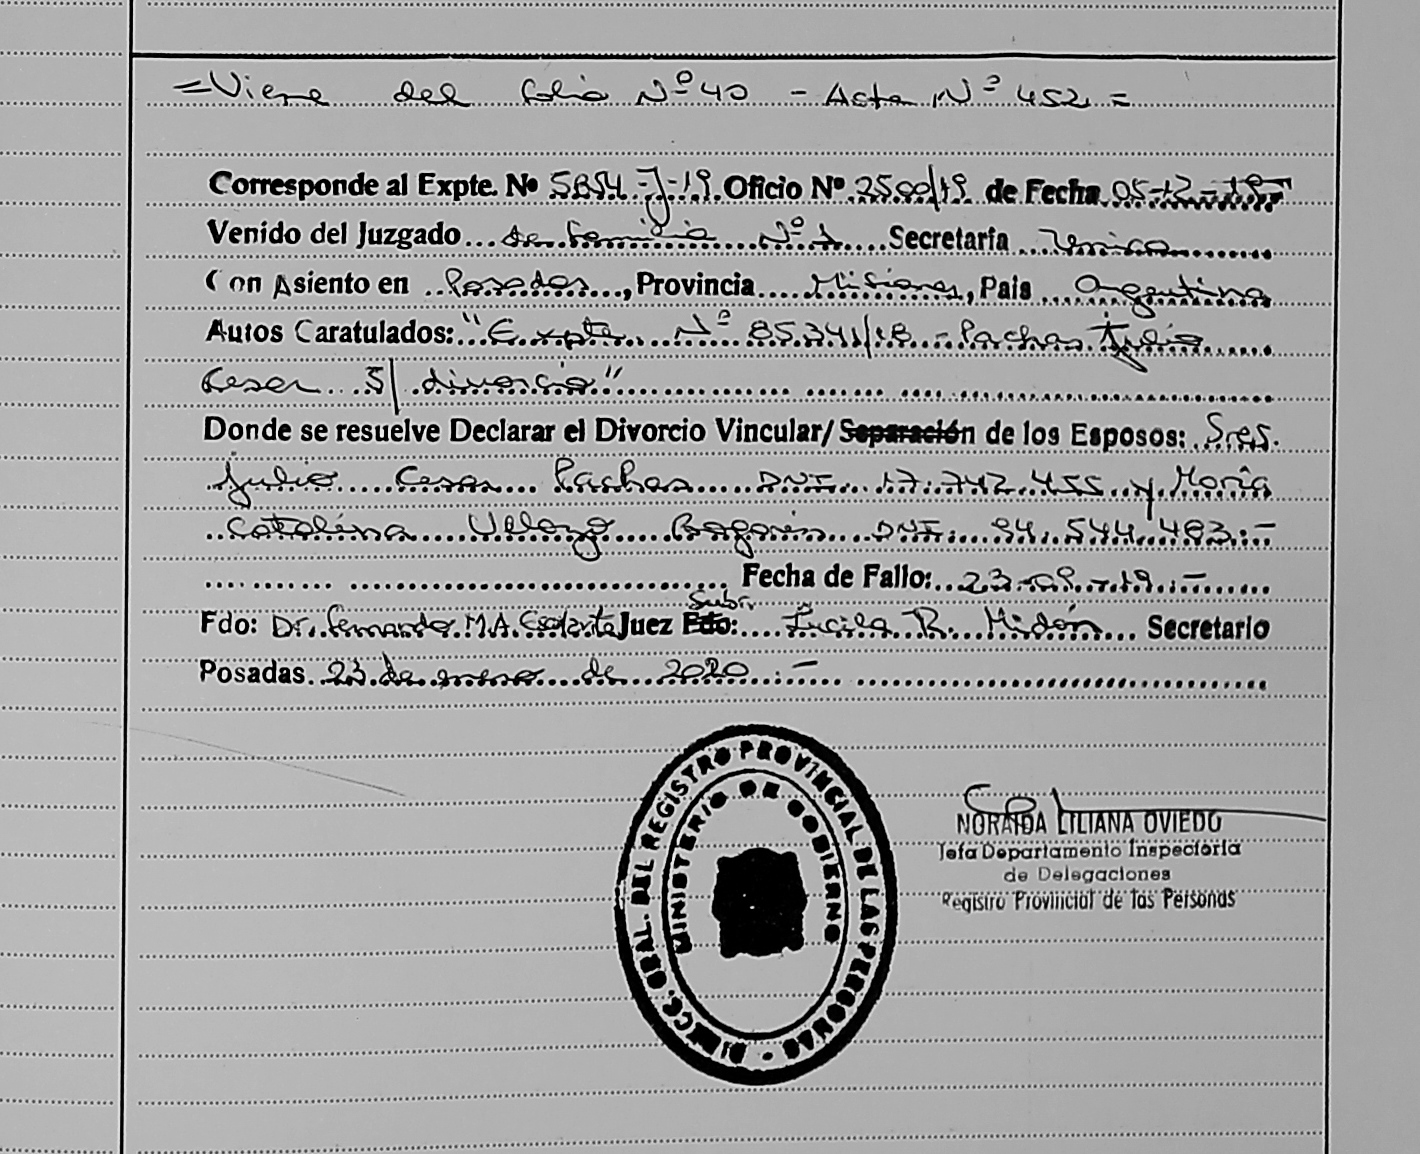 =Viene del folio Nº 40 - Acta Nº 452=
Corresponde al Expte. Nº 5854-J-19 Oficio Nº 2500/19 de Fecha 05-12-19
Venido del Juzgado de Familia Nº 1 Secretaría Unica
Con Asiento en Posadas, Provincia Misiones, País Argentina
Autos Caratulados: "Expte. Nº 85341/18 - Pachas Julio
Cesar S/ divorcio"
Donde se resuelve Declarar el Divorcio Vincular/Separación de los Esposos: Sres.
Julio Cesar Pachas DNI. 17.742.455 y María
Catalina DNI. 94.544.483.-
Fecha de Fallo: 23-08-19.-
Subr.
Fdo: Dr. Fernando M.A. Escalante Juez Fdo: Lucila R. Midón Secretario
Posadas 23 de enero de 2020.-
DIRECC. GRAL. DEL REGISTRO PROVINCIAL DE LAS PERSONAS
MINISTERIO DE GOBIERNO
NORAIDA LILIANA OVIEDO
Jefa Departamento Inspectoria
de Delegaciones
Registro Provincial de las Personas